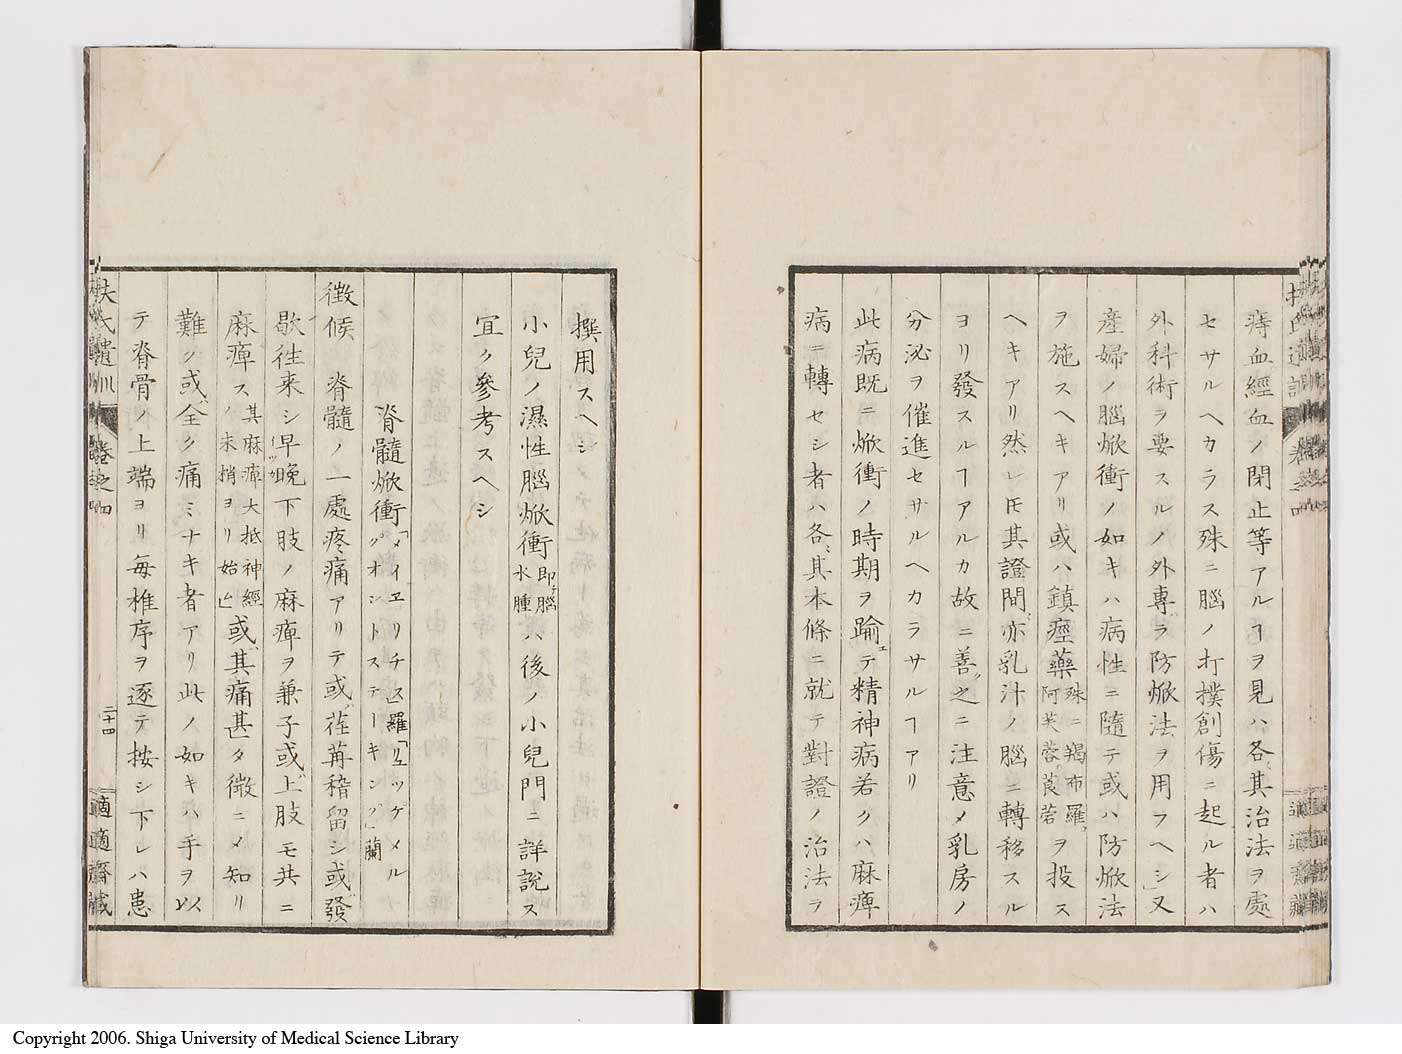 痔血經血ノ閉止等アルヿヲ見ハ各其治法ヲ處
セサルヘカラス殊ニ腦ノ打撲創傷ニ起ル者ハ
外科術ヲ要スルノ外專ラ防焮法ヲ用フヘシ又
産婦ノ腦焮衝ノ如キハ病性ニ隨テ或ハ防焮法
ヲ施スヘキアリ或ハ鎮痙藥殊ニ羯布羅阿芙蓉莨菪ヲ投ス
ヘキアリ然レ𪜈其證間亦乳汁ノ腦ニ轉移スル
ヨリ發スルヿアルカ故ニ善ク之ニ注意メ乳房ノ
分泌ヲ催進セサルヘカラサルヿアリ
此病既ニ焮衝ノ時期ヲ踰エテ精神病若クハ麻痺
病ニ轉セシ者ハ各其本條ニ就テ對證ノ治法ヲ
撰用スヘシ
小兒ノ濕性腦焮衝即チ腦水腫ハ後ノ小兒門ニ詳説ス
宜ク參考スヘシ
脊髓焮衝「メイエリチス」羅「リュッゲメルグオントステーキング」蘭
徴候 脊髓ノ一處疼痛アリテ或ハ荏苒稽留シ或ハ發
歇往来シ早晩下肢ノ麻痺ヲ兼子或ハ上肢モ共ニ
麻痺ス其麻痺大抵神經ノ末梢ヨリ始ム或ハ其痛甚タ微ニメ知リ
難ク或ハ全ク痛ミナキ者アリ此ノ如キハ手ヲ以
テ脊骨ノ上端ヨリ毎椎序ヲ逐テ按シ下レハ患
扶氏遺訓 卷之四
二十四
適適齋藏